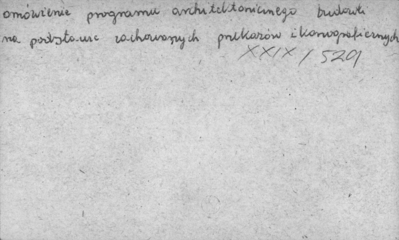 omówienie programu architektonicznego budowli
na podstawie zachowanych przekazów ikonograficznych
XXIX/529